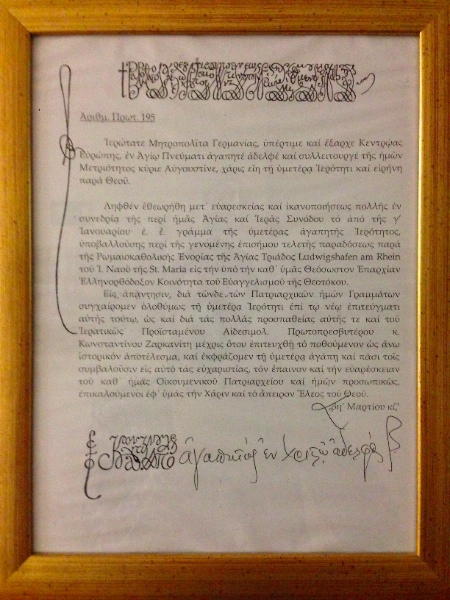 Ἀριθμ. Πρωτ. 195
Ἱερώτατε Μητροπολῖτα Γερμανίας, ὑπέρτιμε καί ἔξαρχε Κεντρῴας
Εὐρώπης, ἐν Ἁγίῳ Πνεύματι ἀγαπητέ ἀδελφέ καί συλλειτουργέ τῆς ἡμῶν
Μετριότητος κύριε Αὐγουστῖνε, χάρις εἴη τῇ ὑμετέρᾳ Ἱερότητι καί εἰρήνη
παρά Θεοῦ.
Ληφθέν ἐθεωρήθη μετ᾽ εὐαρεσκείας καί ἱκανοποιήσεως πολλῆς ἐν
συνεδρίᾳ τῆς περί ἡμᾶς Ἁγίας καί Ἱερᾶς Συνόδου τό ἀπό τῆς γ´
Ἰανουαρίου ἐ. ἔ. γράμμα τῆς ὑμετέρας ἀγαπητῆς Ἱερότητος,
ὑποβαλλούσης περί τῆς γενομένης ἐπισήμου τελετῆς παραδόσεως παρά
τῆς Ρωμαιοκαθολικῆς Ἐνορίας τῆς Ἁγίας Τριάδος Ludwigshafen am Rhein
τοῦ Ἱ. Ναοῦ τῆς St. Maria εἰς τήν ὑπό τήν καθ᾽ ὑμᾶς Θεόσωστον Ἐπαρχίαν
Ἑλληνορθόδοξον Κοινότητα τοῦ Εὐαγγελισμοῦ τῆς Θεοτόκου.
Εἰς ἀπάντησιν, διά τῶνδε τῶν Πατριαρχικῶν ἡμῶν Γραμμάτων
συγχαίρομεν ὁλοθύμως τῇ ὑμετέρᾳ Ἱερότητι ἐπί τῷ νέῳ ἐπιτεύγματι
αὐτῆς τούτῳ, ὡς καί διά τάς πολλάς προσπαθείας αὐτῆς τε καί τοῦ
Ἱερατικῶς Προϊσταμένου Αἰδεσιμολ. Πρωτοπρεσβυτέρου κ.
Κωνσταντίνου Ζαρκανίτη μέχρις ὅτου ἐπιτευχθῇ τό ποθούμενον ὡς ἄνω
ἱστορικόν ἀποτέλεσμα, καί ἐκφράζομεν τῇ ὑμετέρᾳ ἀγάπῃ καί πᾶσι τοῖς
συμβαλοῦσιν εἰς αὐτό τάς εὐχαριστίας, τόν ἔπαινον καί τήν εὐαρέσκειαν
τοῦ καθ᾽ ἡμᾶς Οἰκουμενικοῦ Πατριαρχείου καί ἡμῶν προσωπικῶς,
ἐπικαλούμενοι ἐφ᾽ ὑμᾶς τήν Χάριν καί τό ἄπειρον Ἔλεος τοῦ Θεοῦ.
Μαρτίου κζ´
ἀγαπητός ἐν Χριστῷ ἀδελφός